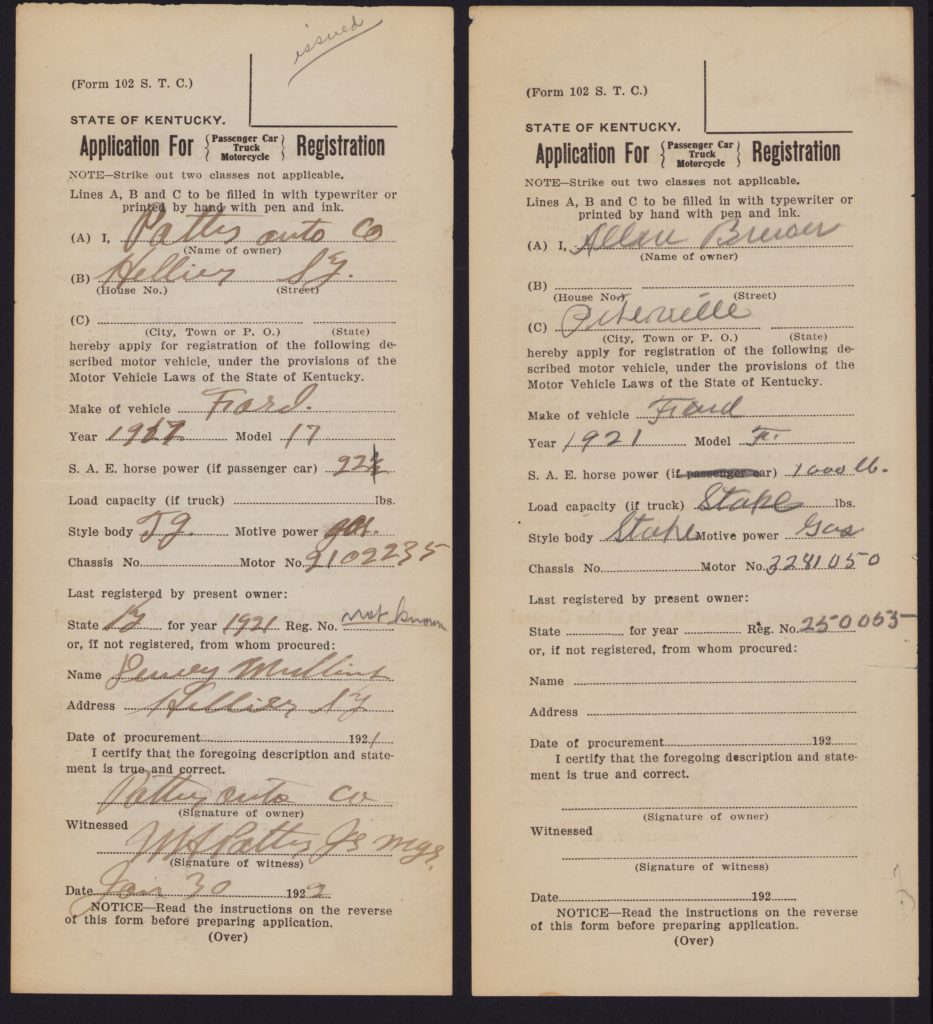 issued
(Form 102 S. T. C.)
STATE OF KENTUCKY.
Application For { Passenger Car Truck Motorcycle } Registration
NOTE—Strike out two classes not applicable.
Lines A, B and C to be filled in with typewriter or
printed by hand with pen and ink.
(A) I, auto Co
(Name of owner)
(B) Hellier Ky.
(House No.) (Street)
(C)
(City, Town or P. O.) (State)
hereby apply for registration of the following de-
scribed motor vehicle, under the provisions of the
Motor Vehicle Laws of the State of Kentucky.
Make of vehicle Ford.
Year 1917 Model 17
S. A. E. horse power (if passenger car)
Load capacity (if truck) lbs.
Style body Motive power gas.
Chassis No. Motor No. 2102235
Last registered by present owner:
State Ky for year 1921 Reg. No. not known
or, if not registered, from whom procured:
Name Mullins
Address Hellier Ky
Date of procurement 1921
I certify that the foregoing description and state-
ment is true and correct.
auto Co
(Signature of owner)
Witnessed
Mgr.
(Signature of witness)
Date Jan 30 1922
NOTICE—Read the instructions on the reverse
of this form before preparing application.
(Over)
(Form 102 S. T. C.)
STATE OF KENTUCKY.
Application For { Passenger Car Truck Motorcycle } Registration
NOTE—Strike out two classes not applicable.
Lines A, B and C to be filled in with typewriter or
printed by hand with pen and ink.
(A) I, Allen Brewer
(Name of owner)
(B)
(House No.) (Street)
(C)
(City, Town or P. O.) (State)
hereby apply for registration of the following de-
scribed motor vehicle, under the provisions of the
Motor Vehicle Laws of the State of Kentucky.
Make of vehicle Ford
Year 1921 Model
S. A. E. horse power (if passenger car) 1000 lb.
Load capacity (if truck) Stake lbs.
Style body Stake Motive power Gas
Chassis No. Motor No. 3281050
Last registered by present owner:
State for year Reg. No. 250055
or, if not registered, from whom procured:
Name
Address
Date of procurement 192
I certify that the foregoing description and state-
ment is true and correct.
(Signature of owner)
Witnessed
(Signature of witness)
Date 192
NOTICE—Read the instructions on the reverse
of this form before preparing application.
(Over)